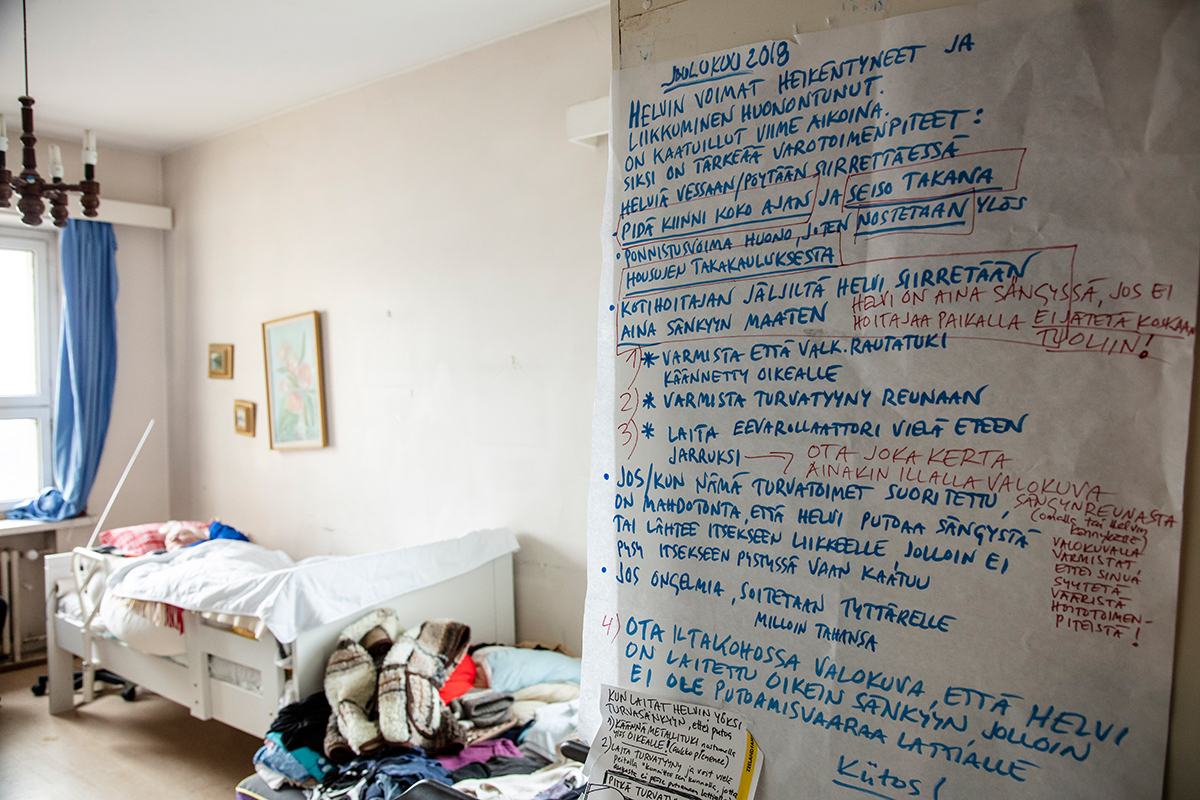 JOULUKUU 2018
HELVIN VOIMAT HEIKENTYNEET JA
LIIKKUMINEN HUONONTUNUT.
ON KAATUILLUT VIIME AIKOINA.
SIKSI ON TÄRKEÄÄ VAROTOIMENPITEET:
HELVIÄ VESSAAN/PÖYTÄÄN SIIRRETTÄESSÄ
• PIDÄ KIINNI KOKO AJAN JA SEISO TAKANA
• PONNISTUSVOIMA HUONO, JOTEN NOSTETAAN YLÖS
HOUSUJEN TAKAKAULUKSESTA
• KOTIHOITAJAN JÄLJILTÄ HELVI SIIRRETÄÄN
AINA SÄNKYYN MAATEN
HELVI ON AINA SÄNGYSSÄ, JOS EI
HOITAJAA PAIKALLA EI JÄTETÄ KOSKAAN
TUOLIIN!
1) * VARMISTA ETTÄ VALK. RAUTATUKI
KÄÄNNETTY OIKEALLE
2) * VARMISTA TURVATYYNY REUNAAN
3) * LAITA EEVAROLLAATTORI VIELÄ ETEEN
JARRUKSI → OTA JOKA KERTA
AINAKIN ILLALLA VALOKUVA
SÄNGYNREUNASTA
(omalla tai Helvin
kännykällä)
VALOKUVALLA
VARMISTAT,
ETTEI SINUA
SYYTETÄ
VÄÄRISTÄ
HOITOTOIMEN-
PITEISTÄ!
• JOS/KUN NÄMÄ TURVATOIMET SUORITETTU,
ON MAHDOTONTA, ETTÄ HELVI PUTOAA SÄNGYSTÄ
TAI LÄHTEE ITSEKSEEN LIIKKEELLE JOLLOIN EI
PYSY ITSEKSEEN PYSTYSSÄ VAAN KAATUU
• JOS ONGELMIA, SOITETAAN TYTTÄRELLE
MILLOIN TAHANSA
4) OTA ILTALKOHOSSA VALOKUVA, ETTÄ HELVI
ON LAITETTU OIKEIN SÄNKYYN JOLLOIN
EI OLE PUTOAMISVAARAA LATTIALLE
Kiitos!
KUN LAITAT HELVIN YÖKSI
TURVASÄNKYYN, ettei putoa
1) KÄÄNNÄ METALLITUKI
YLÖS OIKEALLE
2) LAITA TURVATYYNY ja
PITKÄ TURVATYYNY